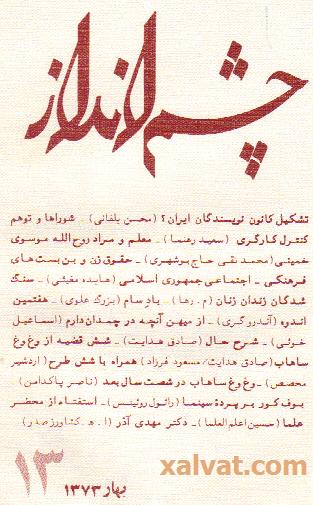 چشم‌انداز
تشکیل کانون نویسندگان ایران؟ (محسن یلفانی) - شوراها و توهم
کنترل کارگری (سعید رهنما) - معلم و مراد روح الله موسوی
خمینی (محمد تقی حاج بوشهری) - حقوق زن و بن بست های
فرهنگی - اجتماعی جمهوری اسلامی (هایده مغیثی) - سنگ
شدگان زندان زنان (م. رها) - یاد سام (بزرگ علوی) - هفتمین
اندوه (آندره گری) - از میهن آنچه در چمدان دارم (اسماعیل
خوئی) - شرح حال (صادق هدایت) - شش قضیه از وغ وغ
ساهاب (صادق هدایت/ مسعود فرزاد) همراه با شش طرح (اردشیر
محصص) - وغ وغ ساهاب در شصت سال بعد (ناصر پاکدامن)
بوف کور بر پردهٔ سینما (رائول روئیتس) - استفتاء از محضر
علما (حسین اعلم العلما) - دکتر مهدی آذر (ا. ه. کشاورز صدر)
۱۳
بهار ۱۳۷۳
xalvat.com